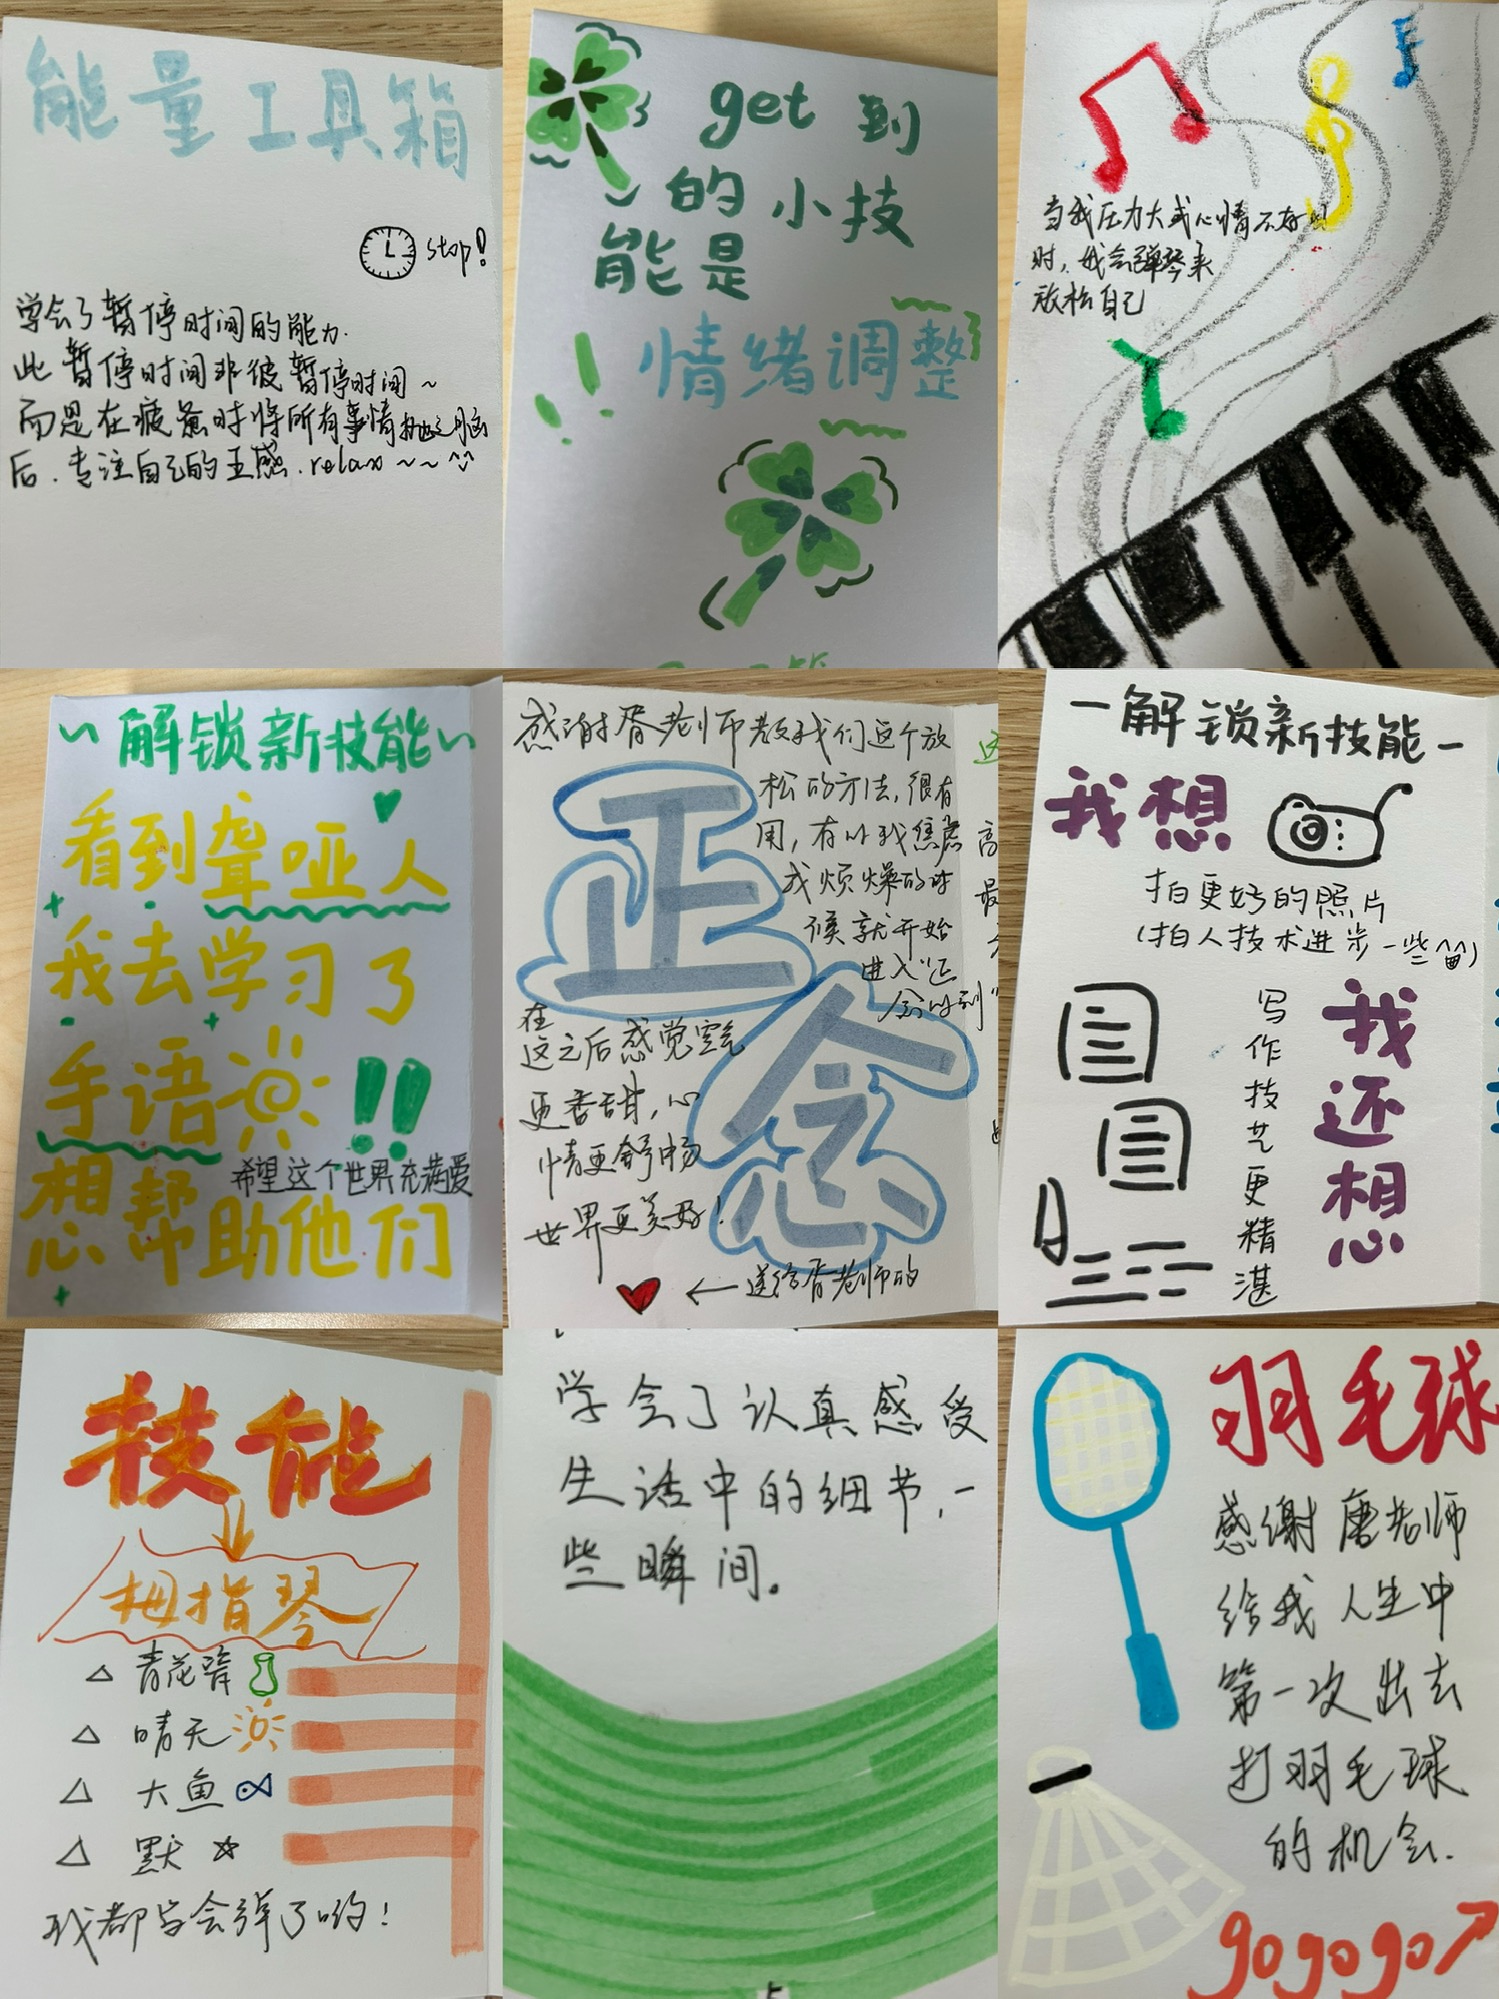 能量工具箱
stop!
学会了暂停时间的能力.
此暂停时间非彼暂停时间~
而是在疲惫时将所有事情抛之脑
后.专注自己的五感.relax~~^^
get到
的小技
能是
情绪调整
!
当我压力大或心情不好
时,我会弹琴来
放松自己
~解锁新技能~
看到聋哑人
我去学习了
手语!!
希望这个世界充满爱
想帮助他们
感谢胥老师教我们这个放
松的方法,很有
用,有时我焦虑
或烦燥的时
候就开始
进入"正
念时刻"
正念
在
这之后感觉空气
更香甜,心
情更舒畅
世界更美好!
←送给胥老师的
高
最
一解锁新技能一
我想
拍更好的照片
(拍人技术进步一些)
我还想
写作技艺更精湛
技能
↓
拇指琴
△ 青花瓷
△ 晴天
△ 大鱼
△ 默
我都学会弹了哟!
学会了认真感受
生活中的细节,一
些瞬间。
羽毛球
感谢唐老师
给我人生中
第一次出去
打羽毛球
的机会.
gogogo